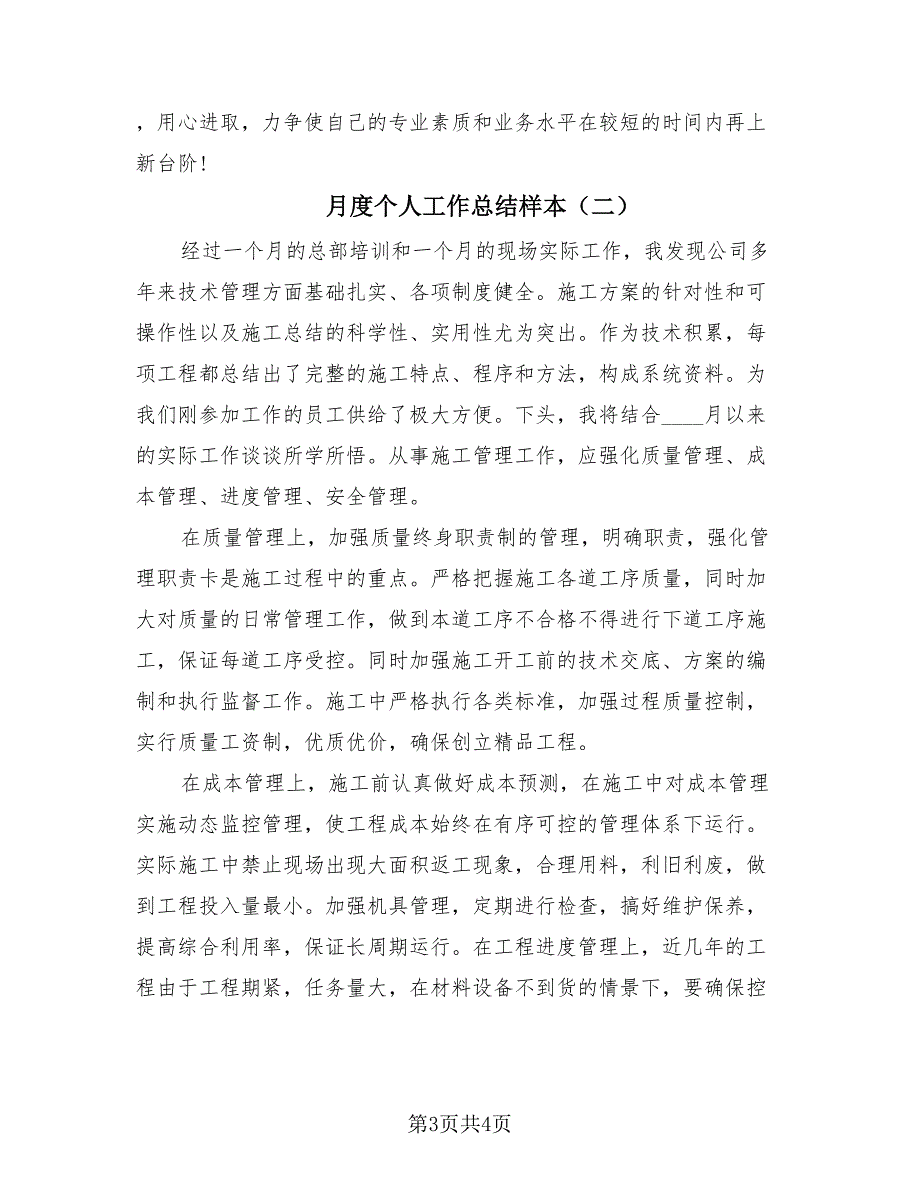 ，用心进取，力争使自己的专业素质和业务水平在较短的时间内再上
新台阶!
月度个人工作总结样本（二）
经过一个月的总部培训和一个月的现场实际工作，我发现公司多
年来技术管理方面基础扎实、各项制度健全。施工方案的针对性和可
操作性以及施工总结的科学性、实用性尤为突出。作为技术积累，每
项工程都总结出了完整的施工特点、程序和方法，构成系统资料。为
我们刚参加工作的员工供给了极大方便。下头，我将结合____月以来
的实际工作谈谈所学所悟。从事施工管理工作，应强化质量管理、成
本管理、进度管理、安全管理。
在质量管理上，加强质量终身职责制的管理，明确职责，强化管
理职责卡是施工过程中的重点。严格把握施工各道工序质量，同时加
大对质量的日常管理工作，做到本道工序不合格不得进行下道工序施
工，保证每道工序受控。同时加强施工开工前的技术交底、方案的编
制和执行监督工作。施工中严格执行各类标准，加强过程质量控制，
实行质量工资制，优质优价，确保创立精品工程。
在成本管理上，施工前认真做好成本预测，在施工中对成本管理
实施动态监控管理，使工程成本始终在有序可控的管理体系下运行。
实际施工中禁止现场出现大面积返工现象，合理用料，利旧利废，做
到工程投入量最小。加强机具管理，定期进行检查，搞好维护保养，
提高综合利用率，保证长周期运行。在工程进度管理上，近几年的工
程由于工程期紧，任务量大，在材料设备不到货的情景下，要确保控
第3页共4页